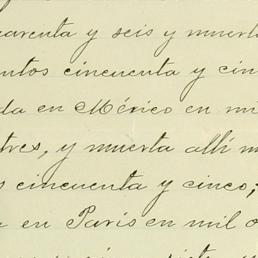 arenta y seis y muerto
entos cincuenta y cin
da en México en mi
tres, y muerta allí m
s cincuenta y cinco;
a en París en mil o